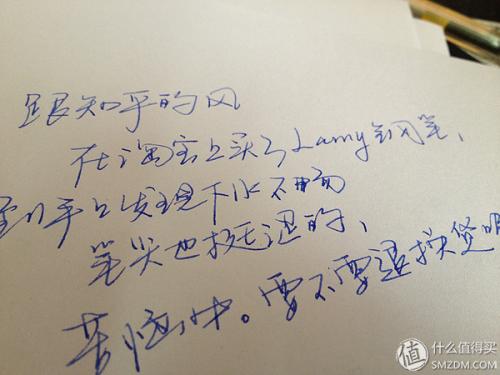 跟知乎的风
在淘宝上买了Lamy钢笔、
到手之发现下水不畅
笔尖也挺迅的、
苦恼中。要不要退换货呢
值 什么值得买
SMZDM.COM